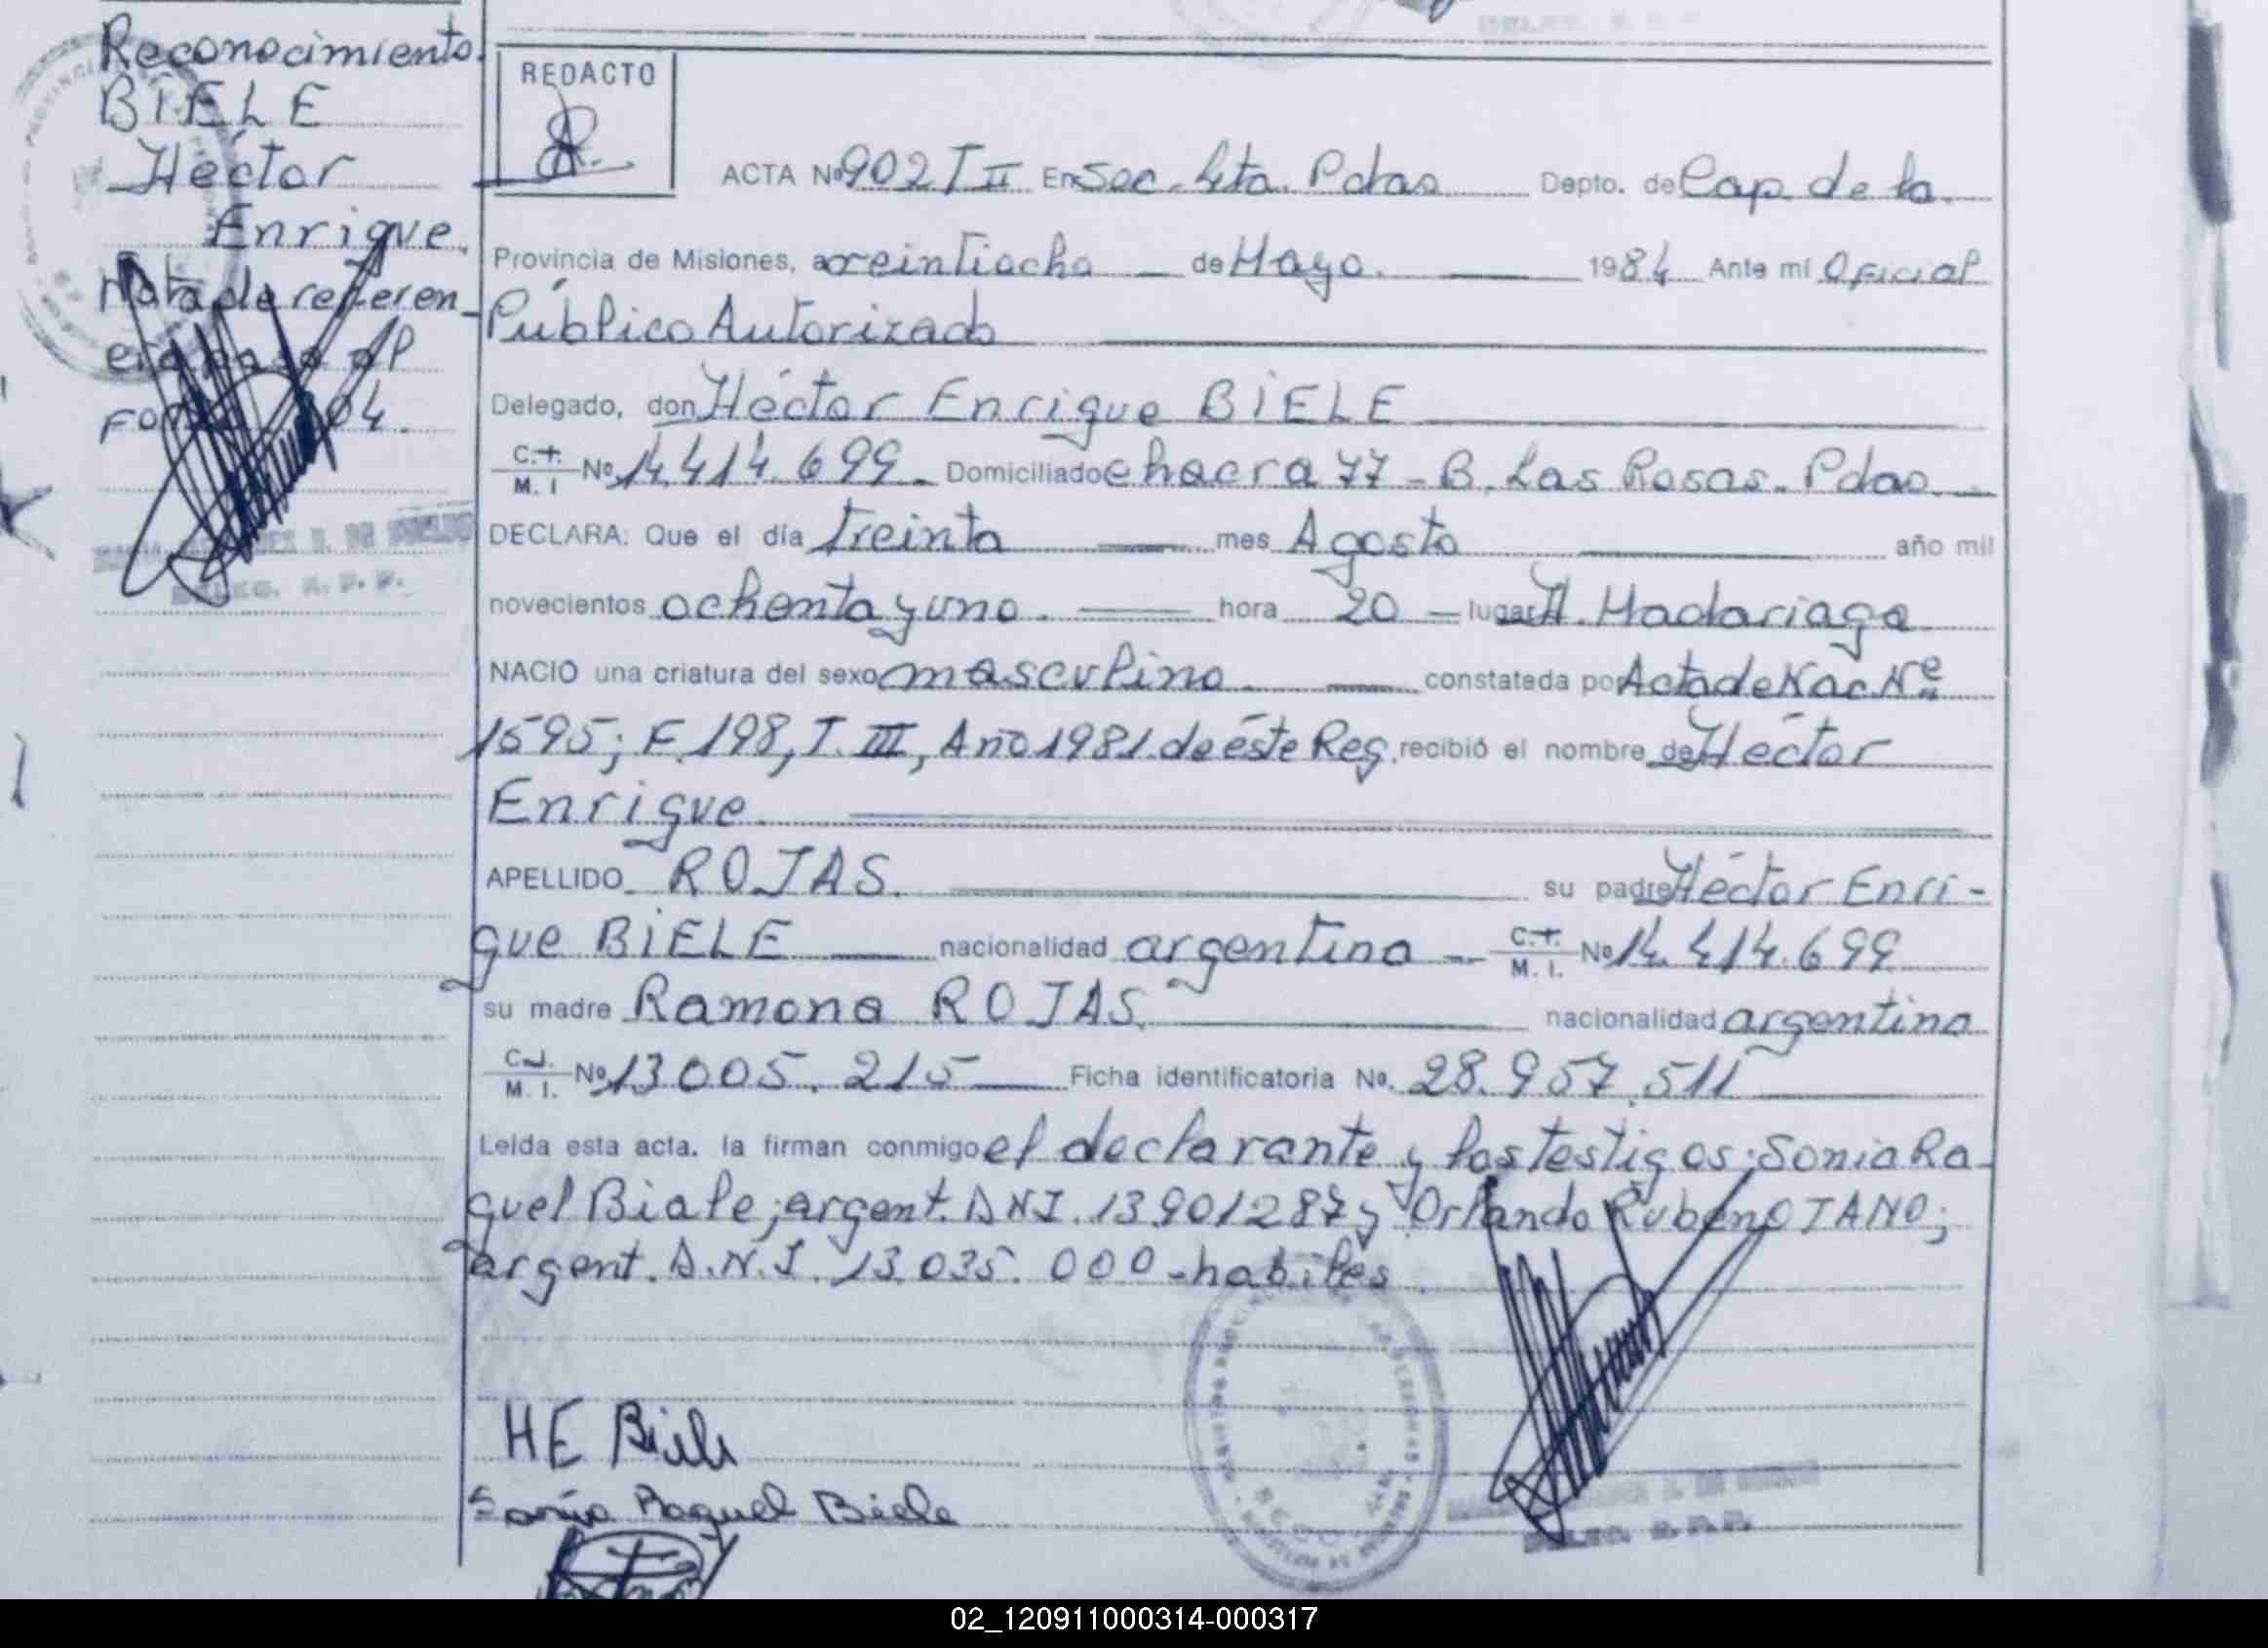 Reconocimiento.
BIELE
Héctor
Enrique.
Nota de referen-
cia pasa al
Folio 104.
REDACTO
ACTA Nº 902 T II En Sec. 4ta. Pdas Depto. de Cap. de la
Provincia de Misiones, a veintiocho — de Mayo. — 1984 Ante mí Oficial
Público Autorizado
Delegado, don Héctor Enrique BIELE
C.I. M. I Nº 14.414.699. Domiciliado chacra 77 - B. Las Rosas. Pdas.
DECLARA: Que el día treinta — mes Agosto — año mil
novecientos ochenta y uno. — hora 20 — lugar H. Madariaga
NACIO una criatura del sexo masculino. — constatada por Acta de Nac. Nº
1595; F. 198, T. III, Año 1981 de éste Reg. recibió el nombre de Héctor
Enrique.
APELLIDO ROJAS. su padre Héctor Enri-
que BIELE — nacionalidad argentina — C.I. M. I. Nº 14.414.699
su madre Ramona ROJAS. nacionalidad argentina
C.I. M. I. Nº 13.005.215 — Ficha identificatoria Nº. 28.957.511
Leida esta acta. la firman conmigo el declarante y los testigos; Sonia Ra-
quel Biale; argent. DNI. 13901287 y Orlando Ruben OJANO;
argent. D.N.I. 13.035.000 - habiles
HE Biele
Sonia Raquel Biele
02_120911000314-000317